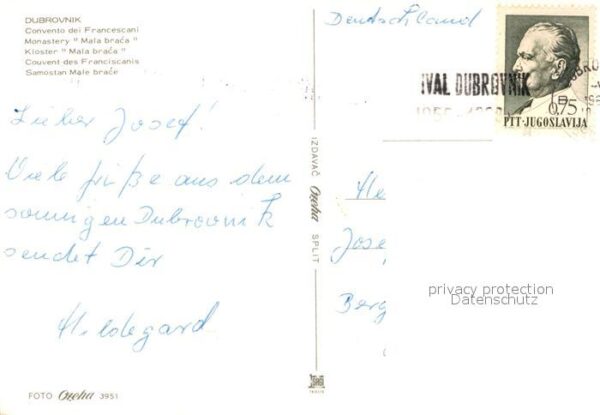 DUBROVNIK
Convento dei Francescani
Monastery "Mala braća"
Kloster "Mala braća"
Couvent des Franciscanis
Samostan Male braće
Lieber Josef!
Viele Grüße aus dem
sonnigen Dubrovnik
sendet Dir
Hildegard
FOTO Oreha 3951
IZDAVAČ Oreha SPLIT
Deutschland
IVAL DUBROVNIK
0,75
PTT-JUGOSLAVIJA
He
Jose
Berg
privacy protection
Datenschutz